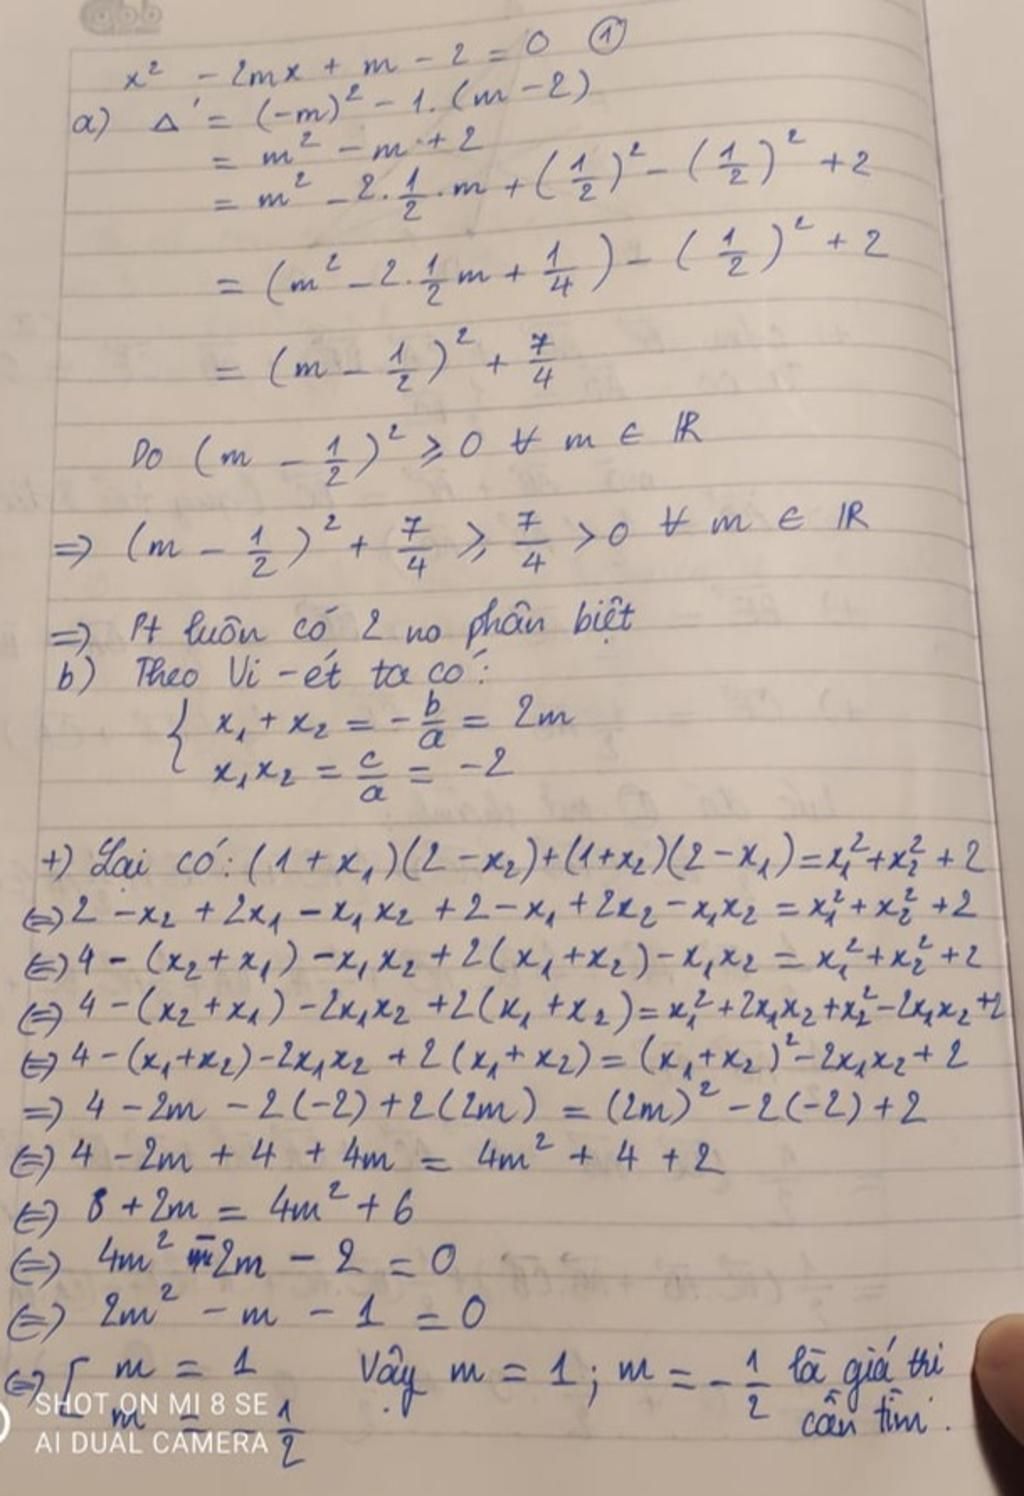 x² - 2mx + m - 2 = 0 ①
a) Δ' = (-m)² - 1.(m - 2)
= m² - m + 2
= m² - 2.1/2.m + (1/2)² - (1/2)² + 2
= (m² - 2.1/2m + 1/4) - (1/2)² + 2
= (m - 1/2)² + 7/4
Do (m - 1/2)² ⩾ 0 ∀ m ∈ ℝ
=> (m - 1/2)² + 7/4 ⩾ 7/4 > 0 ∀ m ∈ ℝ
=> Pt luôn có 2 no phân biệt
b) Theo Vi-ét ta có:
{ x₁ + x₂ = -b/a = 2m
x₁x₂ = c/a = -2
+) Lại có: (1 + x₁)(2 - x₂) + (1 + x₂)(2 - x₁) = x₁² + x₂² + 2
<=> 2 - x₂ + 2x₁ - x₁x₂ + 2 - x₁ + 2x₂ - x₁x₂ = x₁² + x₂² + 2
<=> 4 - (x₂ + x₁) - x₁x₂ + 2(x₁ + x₂) - x₁x₂ = x₁² + x₂² + 2
<=> 4 - (x₂ + x₁) - 2x₁x₂ + 2(x₁ + x₂) = x₁² + 2x₁x₂ + x₂² - 2x₁x₂ + 2
<=> 4 - (x₁ + x₂) - 2x₁x₂ + 2(x₁ + x₂) = (x₁ + x₂)² - 2x₁x₂ + 2
=> 4 - 2m - 2(-2) + 2(2m) = (2m)² - 2(-2) + 2
<=> 4 - 2m + 4 + 4m = 4m² + 4 + 2
<=> 8 + 2m = 4m² + 6
<=> 4m² - 2m - 2 = 0
<=> 2m² - m - 1 = 0
<=> [ m = 1 Vậy m = 1 ; m = -1/2 là giá thị
m = -1/2 cần tìm.
SHOT ON MI 8 SE
AI DUAL CAMERA